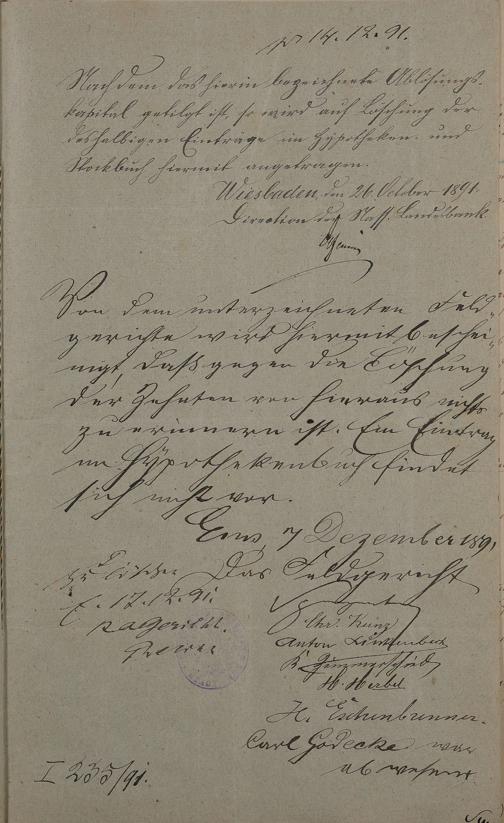 14.12.91.
Nachdem das hierin bezeichnete Ablösungs-
kapital getilgt ist, so wird auf Löschung der
deshalbigen Einträge im Hypotheken- und
Stockbuch hiermit angetragen.
Wiesbaden, den 26. October 1891.
Direction der Nass. Landesbank
Von dem unterzeichneten Feld-
gerichte wird hiermit beschei-
nigt, daß gegen die Löschung
der Zehnten von hieraus nichts
zu erinnern ist. Ein Eintrag
im Hypothekenbuch findet
sich nicht vor.
Ems 7 Dezember 1891
Das Feldgericht
zu löschen
E. 17.12.91.
Chr. Kunz
Anton
H. Herbel
H. Eschenbrenner.
Carl Godecke war
abwesend
I 235/91.